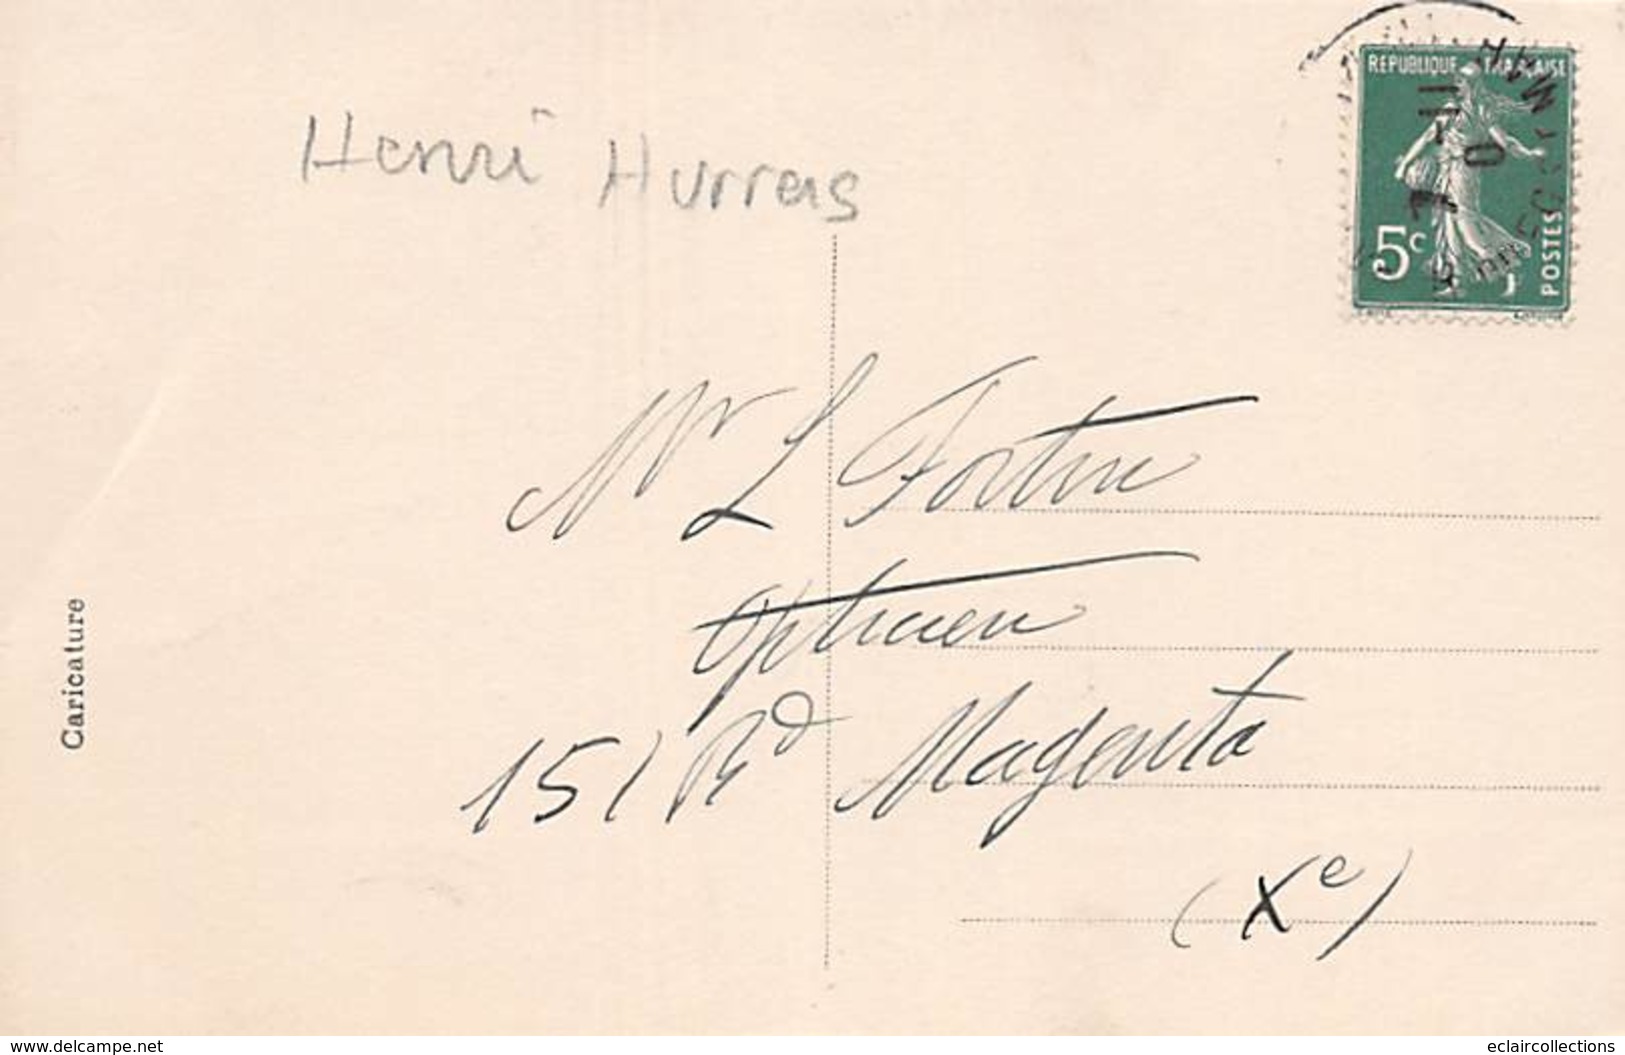 Henri Hurreas
REPUBLIQUE FRANÇAISE
5c
POSTES
Mr L Fortin
Opticien
151 Bd Magenta
(Xe)
Caricature
www.delcampe.net
eclaircollections